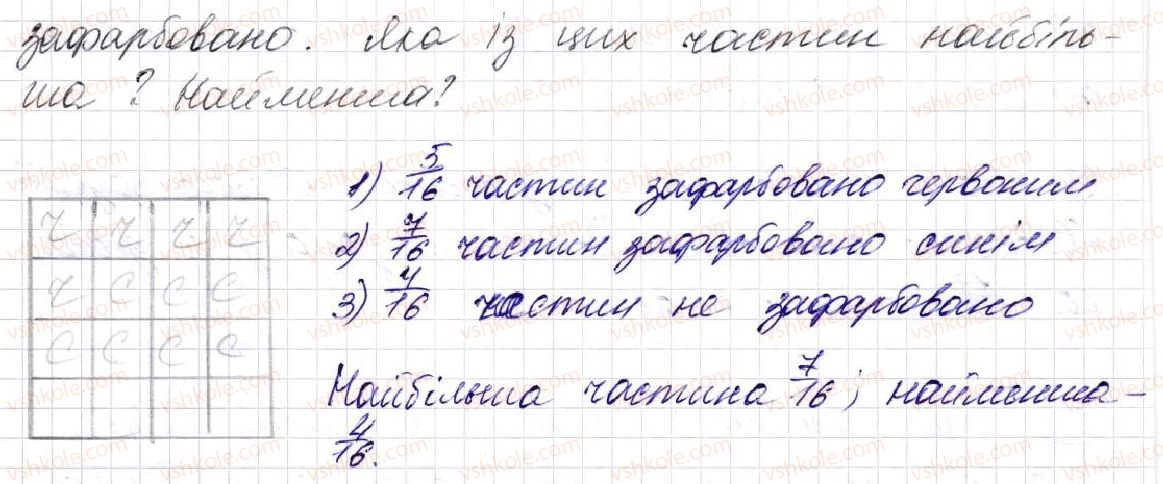 зафарбовано. Яка із цих частин найбіль-
ша? Найменша?
1) 5/16 частин зафарбовано червоним
2) 7/16 частин зафарбовано синім
3) 4/16 частин не зафарбовано
ч ч ч ч
ч с с с
с с с с
Найбільша частина 7/16; найменша -
4/16.